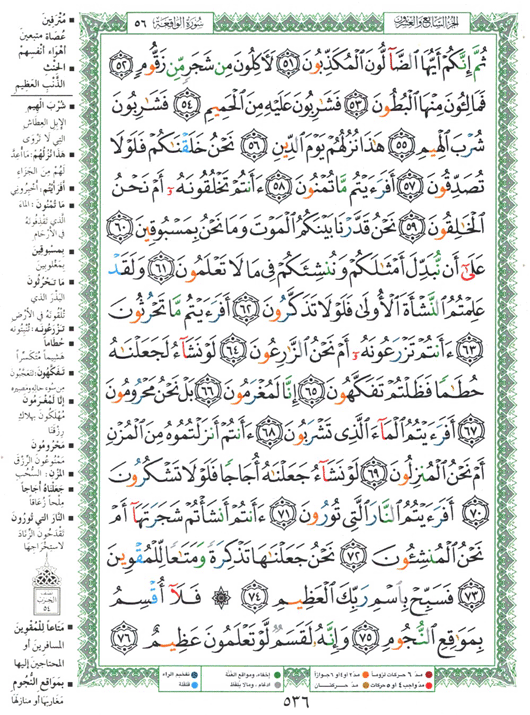 الجزء السابع والعشرون
سُورَةُ الواقِعَة ٥٦
ثُمَّ إِنَّكُمْ أَيُّهَا ٱلضَّآلُّونَ ٱلْمُكَذِّبُونَ ٥١ لَءَاكِلُونَ مِن شَجَرٍ مِّن زَقُّومٍ ٥٢
فَمَالِـُٔونَ مِنْهَا ٱلْبُطُونَ ٥٣ فَشَـٰرِبُونَ عَلَيْهِ مِنَ ٱلْحَمِيمِ ٥٤ فَشَـٰرِبُونَ
شُرْبَ ٱلْهِيمِ ٥٥ هَـٰذَا نُزُلُهُمْ يَوْمَ ٱلدِّينِ ٥٦ نَحْنُ خَلَقْنَـٰكُمْ فَلَوْلَا
تُصَدِّقُونَ ٥٧ أَفَرَءَيْتُم مَّا تُمْنُونَ ٥٨ ءَأَنتُمْ تَخْلُقُونَهُۥٓ أَمْ نَحْنُ
ٱلْخَـٰلِقُونَ ٥٩ نَحْنُ قَدَّرْنَا بَيْنَكُمُ ٱلْمَوْتَ وَمَا نَحْنُ بِمَسْبُوقِينَ ٦٠
عَلَىٰٓ أَن نُّبَدِّلَ أَمْثَـٰلَكُمْ وَنُنشِئَكُمْ فِى مَا لَا تَعْلَمُونَ ٦١ وَلَقَدْ
عَلِمْتُمُ ٱلنَّشْأَةَ ٱلْأُولَىٰ فَلَوْلَا تَذَكَّرُونَ ٦٢ أَفَرَءَيْتُم مَّا تَحْرُثُونَ
٦٣ ءَأَنتُمْ تَزْرَعُونَهُۥٓ أَمْ نَحْنُ ٱلزَّٰرِعُونَ ٦٤ لَوْ نَشَآءُ لَجَعَلْنَـٰهُ
حُطَـٰمًا فَظَلْتُمْ تَفَكَّهُونَ ٦٥ إِنَّا لَمُغْرَمُونَ ٦٦ بَلْ نَحْنُ مَحْرُومُونَ
٦٧ أَفَرَءَيْتُمُ ٱلْمَآءَ ٱلَّذِى تَشْرَبُونَ ٦٨ ءَأَنتُمْ أَنزَلْتُمُوهُ مِنَ ٱلْمُزْنِ
أَمْ نَحْنُ ٱلْمُنزِلُونَ ٦٩ لَوْ نَشَآءُ جَعَلْنَـٰهُ أُجَاجًا فَلَوْلَا تَشْكُرُونَ
٧٠ أَفَرَءَيْتُمُ ٱلنَّارَ ٱلَّتِى تُورُونَ ٧١ ءَأَنتُمْ أَنشَأْتُمْ شَجَرَتَهَآ أَمْ
نَحْنُ ٱلْمُنشِـُٔونَ ٧٢ نَحْنُ جَعَلْنَـٰهَا تَذْكِرَةً وَمَتَـٰعًا لِّلْمُقْوِينَ
٧٣ فَسَبِّحْ بِٱسْمِ رَبِّكَ ٱلْعَظِيمِ ٧٤ ۞ فَلَآ أُقْسِمُ
بِمَوَٰقِعِ ٱلنُّجُومِ ٧٥ وَإِنَّهُۥ لَقَسَمٌ لَّوْ تَعْلَمُونَ عَظِيمٌ ٧٦
مُتْرَفِينَ
عُصَاة متبعين
أهْوَاء أنفسِهم
الحِنْث
الذَّنْب العَظِيم
شُرْبَ الهِيم
الإبِل العِطَاش
الّتي لا تَرْوَى
هَذَا نُزُلُهُمْ: ما أُعِدَّ
لَهُمْ من الجَزَاء
أفَرَأيْتُم: أخْبِرُوني
مَا تُمْنُونَ: الماء
الّذي تَقْذِفُونَه
في الأرْحَام
بِمَسْبُوقِين
بِمَغلوبين
مَا تَحْرُثُون
البَذْرَ الذي
تُلْقُونَه في الأرْض
تَزْرَعُونَه: تُنْبِتُونَه
حُطَاماً
هَشِيماً مُتَكَسِّراً
تَفَكَّهُون: تتعجّبون
من سُوء حاله ومصيره
إنَّا لَمُغْرَمُون
مُهْلَكُون بِهَلاك
رِزْقِنا
مَحْرُومُون
مَمْنُوعُون الرِّزْق
المُزْن: السُّحُب
جَعَلْنَاهُ أُجَاجاً
مِلْحاً زُعَاقاً
النَّارَ التي تُورُون
تَقْدَحُون الزِّنَادَ
لاسْتِخْرَاجِهَا
نصف
الحزب
٥٤
مَتَاعاً لِلْمُقْوِينَ
المسَافِرين أو
المحتاجين إليها
بِمَوَاقِع النُّجُوم
مَغَارِبِهَا أو مَنَازِلِهَا
مدّ ٦ حركات لزوماً
مدّ ٢ أو ٤ أو ٦ جوازاً
إخفاء، ومواقع الغُنَّة
تفخيم الراء
مدّ واجب ٤ أو ٥ حركات
مدّ حركتان
ادغام، وما لا يُلفَظ
قلقلة
٥٣٦